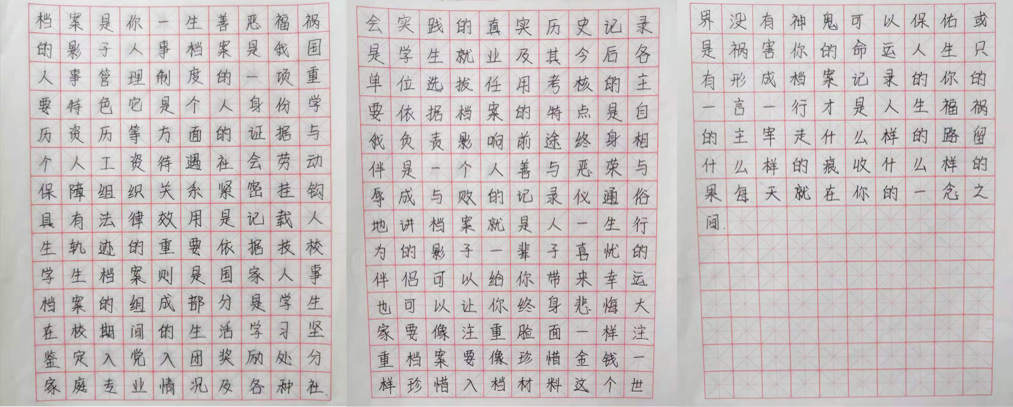 档案是你一生善恶福祸
的影子人事档案是我国
人事管理制度的一项重
要特色它是个人身份学
历资历等方面的证据与
个人工资待遇社会劳动
保障组织关系紧密挂钩
具有法律效用是记载人
生轨迹的重要依据技校
学生档案则是国家人事
档案的组成部分是学生
在校期间的生活学习坚
鉴定入党入团奖励处分
家庭专业情况及各种社
会实践的真实历史记录
是学生就业及其今后各
单位选拔任用考核的主
要依据档案的特点是自
我负责影响前途终身相
伴是一个人善与恶荣与
辱成与败的记录仪通俗
地讲档案就是人一生行
为的影子一辈子喜忧的
伴侣可以给你带来幸运
也可以让你终身悲悔大
家要像注重脸面一样注
重档案要像珍惜金钱一
样珍惜入档材料这个世
界没有神鬼可以保佑或
是祸害你的命运人生只
有形成档案记录的你的
一言一行才是人生福祸
的主宰走什么样的路留
什么样的痕收什么样的
果每天就在你的一念之
间.